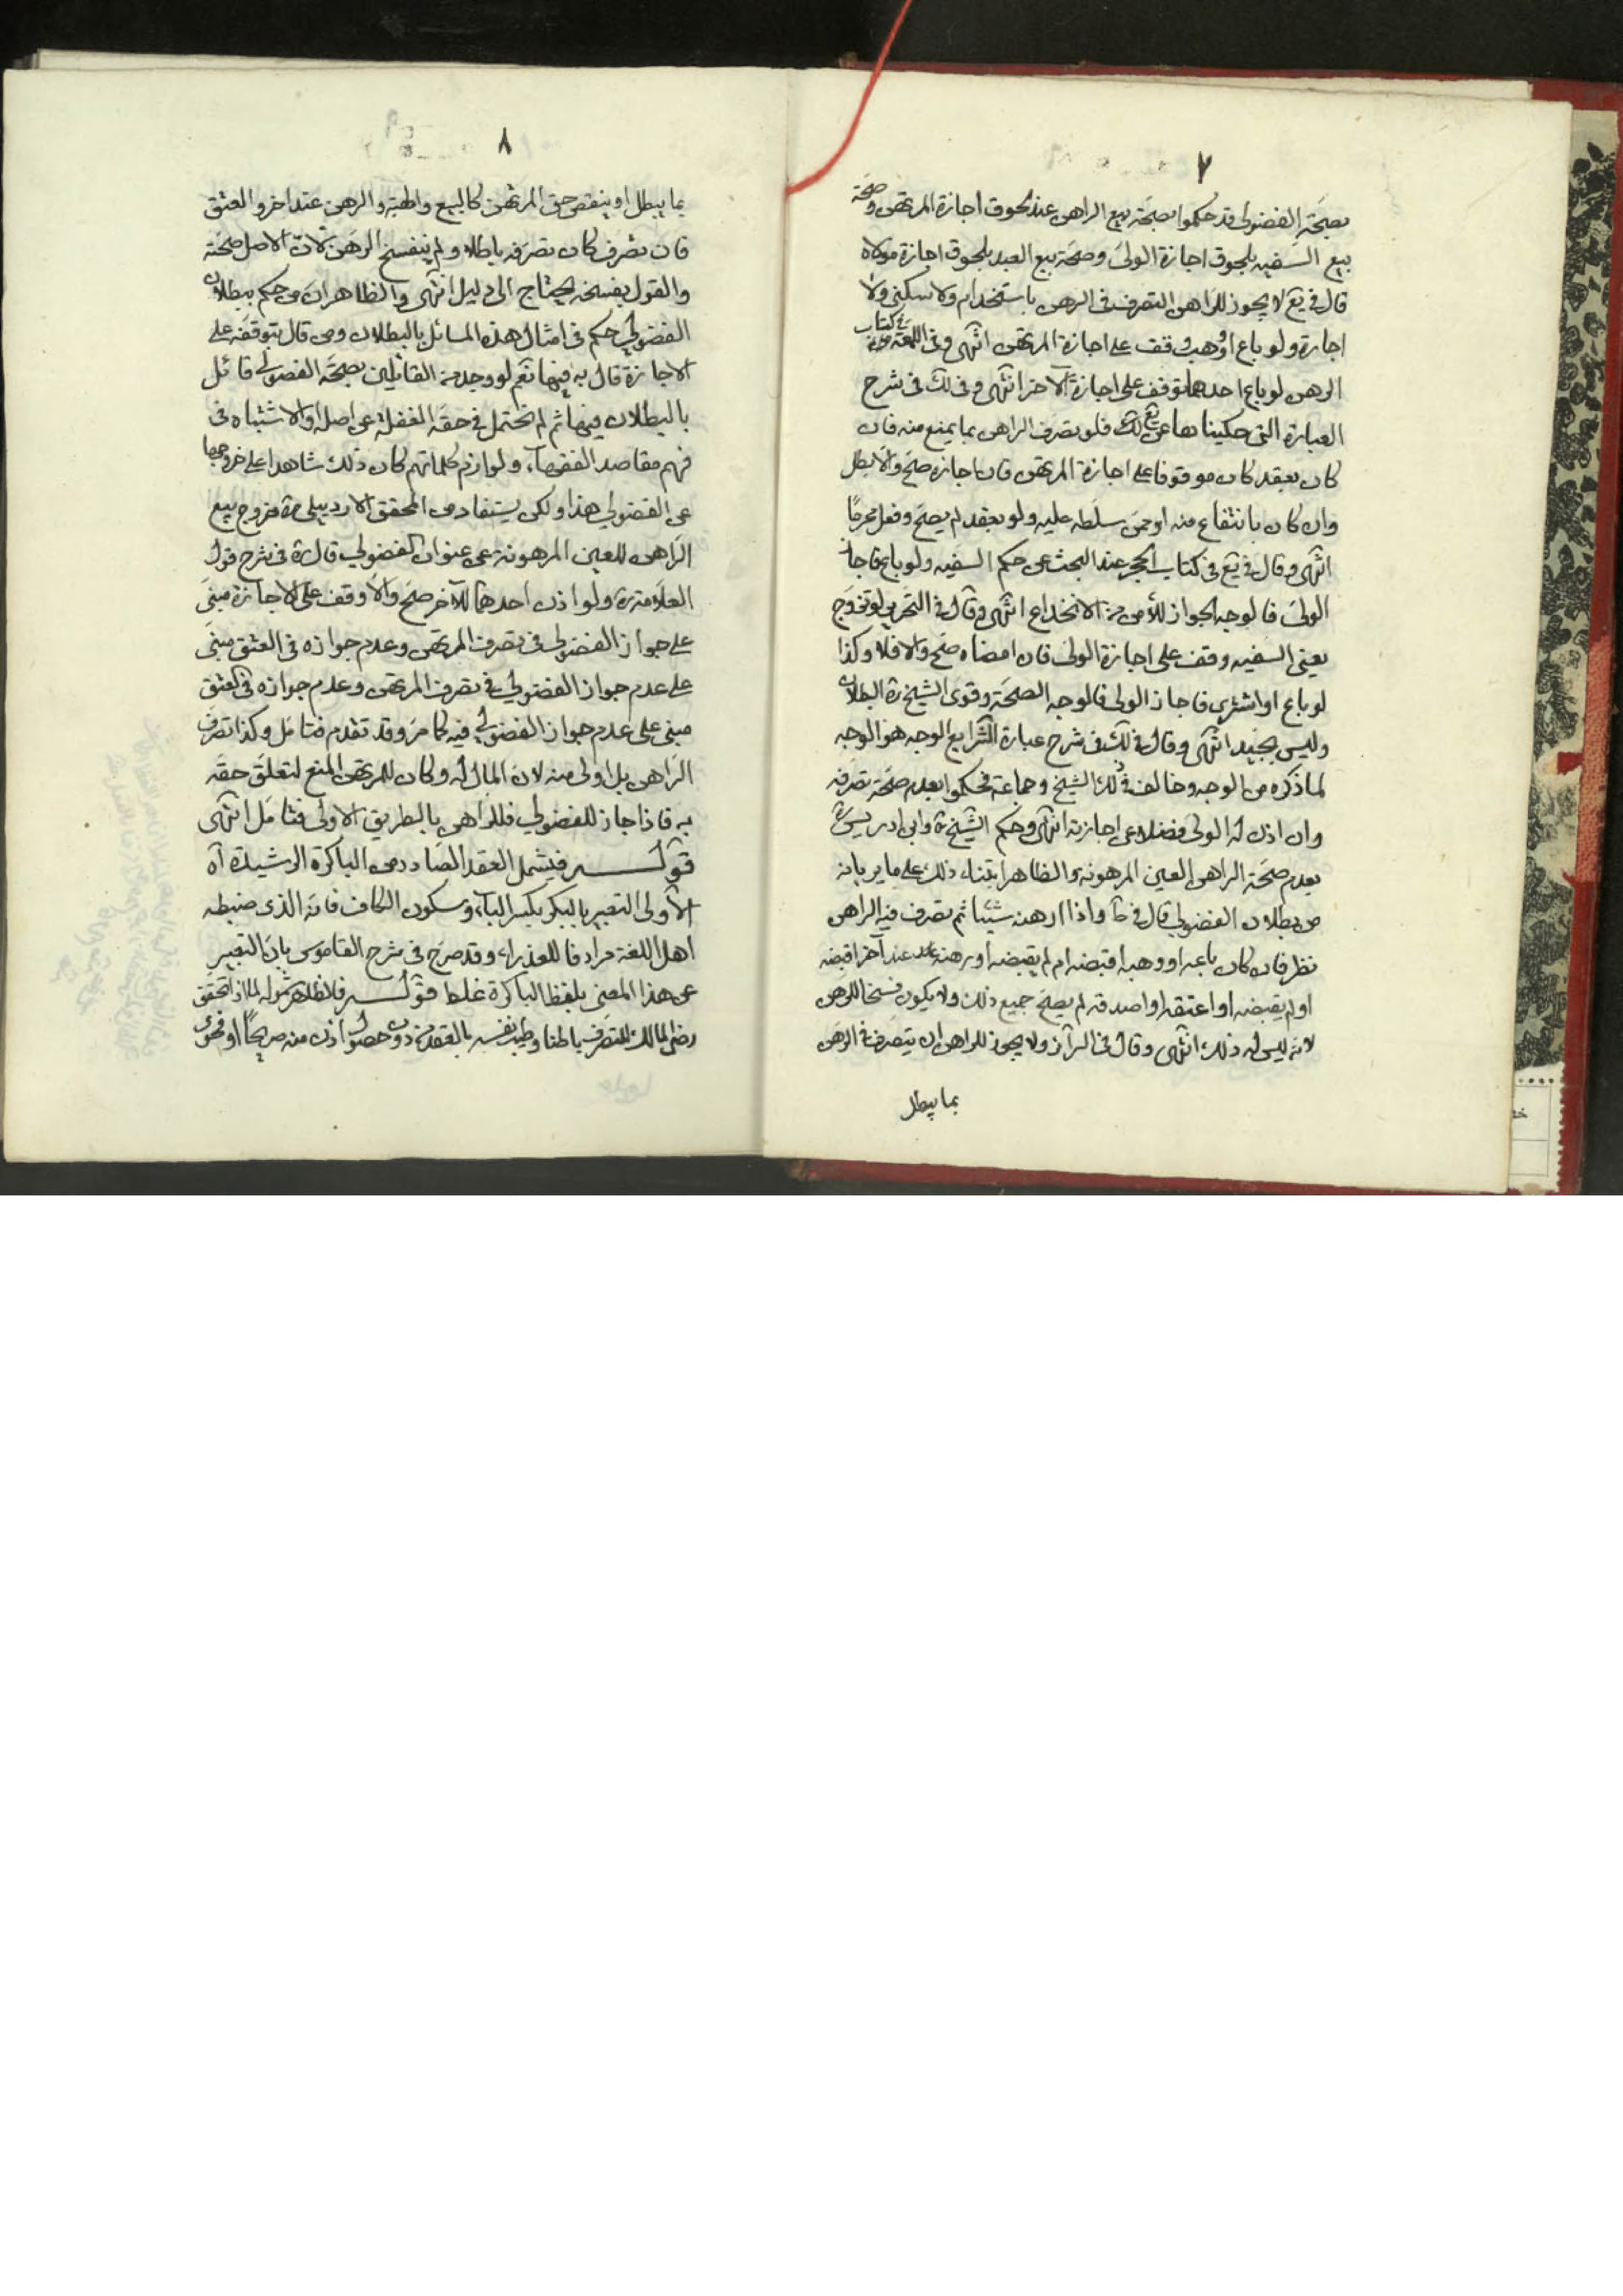 ٧
بصحّة الفضولي قد حكموا بصحّة بيع الراهن عند لحوق اجازة المرتهن وصحّة
بيع السفيه بلحوق اجازة الولىّ وصحّة بيع العبد بلحوق اجازة مولاه
قال في يع لا يجوز للراهن التصرف فى الرهن باستخدام ولا سكنى ولا
اجارة ولو باع او وهب وقف على اجازة المرتهن انتهى وفى اللمعة في كتاب
الرهن لو باع احدهما توقف على اجازة الآخر انتهى وفى لك فى شرح
العبارة التى حكيناها عن يع لك فلو تصرف الراهن بما يمنع منه فان
كان بعقد كان موقوفا على اجازة المرتهن فان اجازه صحّ والا بطل
وان كان بانتفاع منه او ممن سلّطه عليه ولو بعقد لم يصحّ وفعل محرمًا
انتهى وقال في يع فى كتاب الحجر عند البحث عن حكم السفيه ولو باع فاجاز
الولىّ فالوجه الجواز للأمن من الانخداع انتهى وقال فى التحرير لو تزوّج
يعنى السفيه وقف على اجازة الولىّ فان امضاه صحّ والا فلا وكذا
لو باع او اشترى فاجاز الولى فالوجه الصحّة وقوى الشيخ ره البطلان
وليس بجيّد انتهى وقال في لك فى شرح عبارة الشرايع الوجه هو الوجه
لما ذكره من الوجه وخالف في ذلك الشيخ وجماعة فحكموا بعدم صحّة تصرفه
وان اذن له الولى فضلا عن اجازته انتهى وحكم الشيخ ره وابن ادريس ره
بعدم صحّة الراهن العين المرهونة والظاهر ابتناء ذلك على ما يريانه
من بطلان الفضولي قال في ط واذا ارهنه شيئا ثم تصرف فيه الراهن
نظر فان كان باعه او وهبه اقبضه ام لم يقبضه او رهنه عند آخر اقبضه
او لم يقبضه او اعتقه او اصدقه لم يصحّ جميع ذلك ولا يكون فسخا للرهن
لانّه ليس له ذلك انتهى وقال فى السرائر ولا يجوز للراهن ان يتصرف في الرهن
بما يبطل
٨
بما يبطل او ينقص حق المرتهن كالبيع والهبة والرهن عند اخر والعتق
فان تصرف كان تصرفه باطلا ولم ينفسخ الرهن لانّ الاصل صحّته
والقول بفسخه يحتاج الى دليل انتهى والظاهر ان من حكم ببطلان
الفضولي حكم فى امثال هذه المسائل بالبطلان ومن قال بتوقفه على
الاجازة قال به فيها نعم لو وجد من القائلين بصحّة الفضولى قائل
بالبطلان فيها ثم لم نحتمل فى حقه الغفلة عن اصله او الاشتباه فى
فهم مقاصد الفقهاء ولوازم كلماتهم كان ذلك شاهدا على خروجها
عن الفضولي هذا ولكن يستفاد من المحقق الاردبيلى ره خروج بيع
الراهن للعين المرهونة عن عنوان الفضولي قال ره فى شرح قول
العلّامة ره ولو اذن احدهما للآخر صحّ والّا وقف على الاجازة مبنى
على جواز الفضولى فى تصرف المرتهن وعدم جوازه فى العتق مبنى
على عدم جواز الفضولي في تصرف المرتهن وعدم جوازه فى العتق
مبنى على عدم جواز الفضولي فيه كما مر وقد تقدم فتامل وكذا تصرف
الراهن بل اولى منه لان المال له وكان للمرتهن المنع لتعلق حقه
به فاذا جاز للفضولي فللراهن بالطريق الاولى فتامل انتهى
قوله فيشمل العقد الصادر من الباكرة الرشيدة آه
الأولى التعبير بالبكر بكسر الباء وسكون الكاف فانه الذى ضبطه
اهل اللغة مرادفا للعذراء وقد صرح فى شرح القاموس بان التعبير
عن هذا المعنى بلفظ الباكرة غلط قوله فالظاهر شموله لما اذا تحقق
رضى المالك للتصرف باطنا وطيب نفسه بالعقد من دون حصول اذن منه صريحًا او فحوى